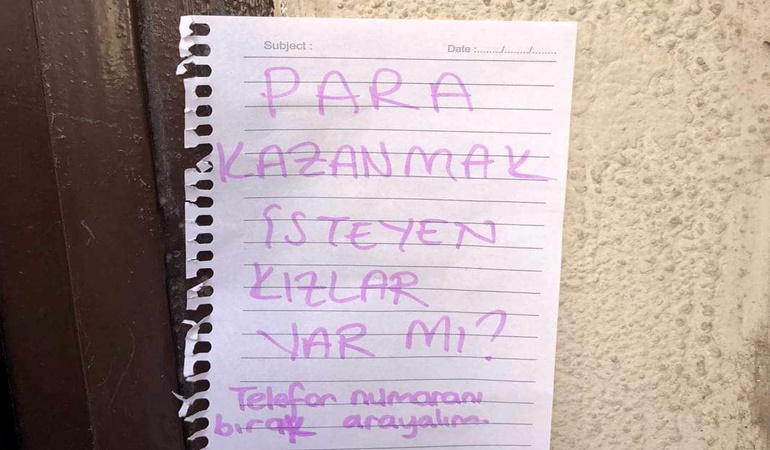 Subject :
Date :......../......../........
PARA
KAZANMAK
İSTEYEN
KIZLAR
VAR MI?
Telefon numaranı
bırak arayalım.